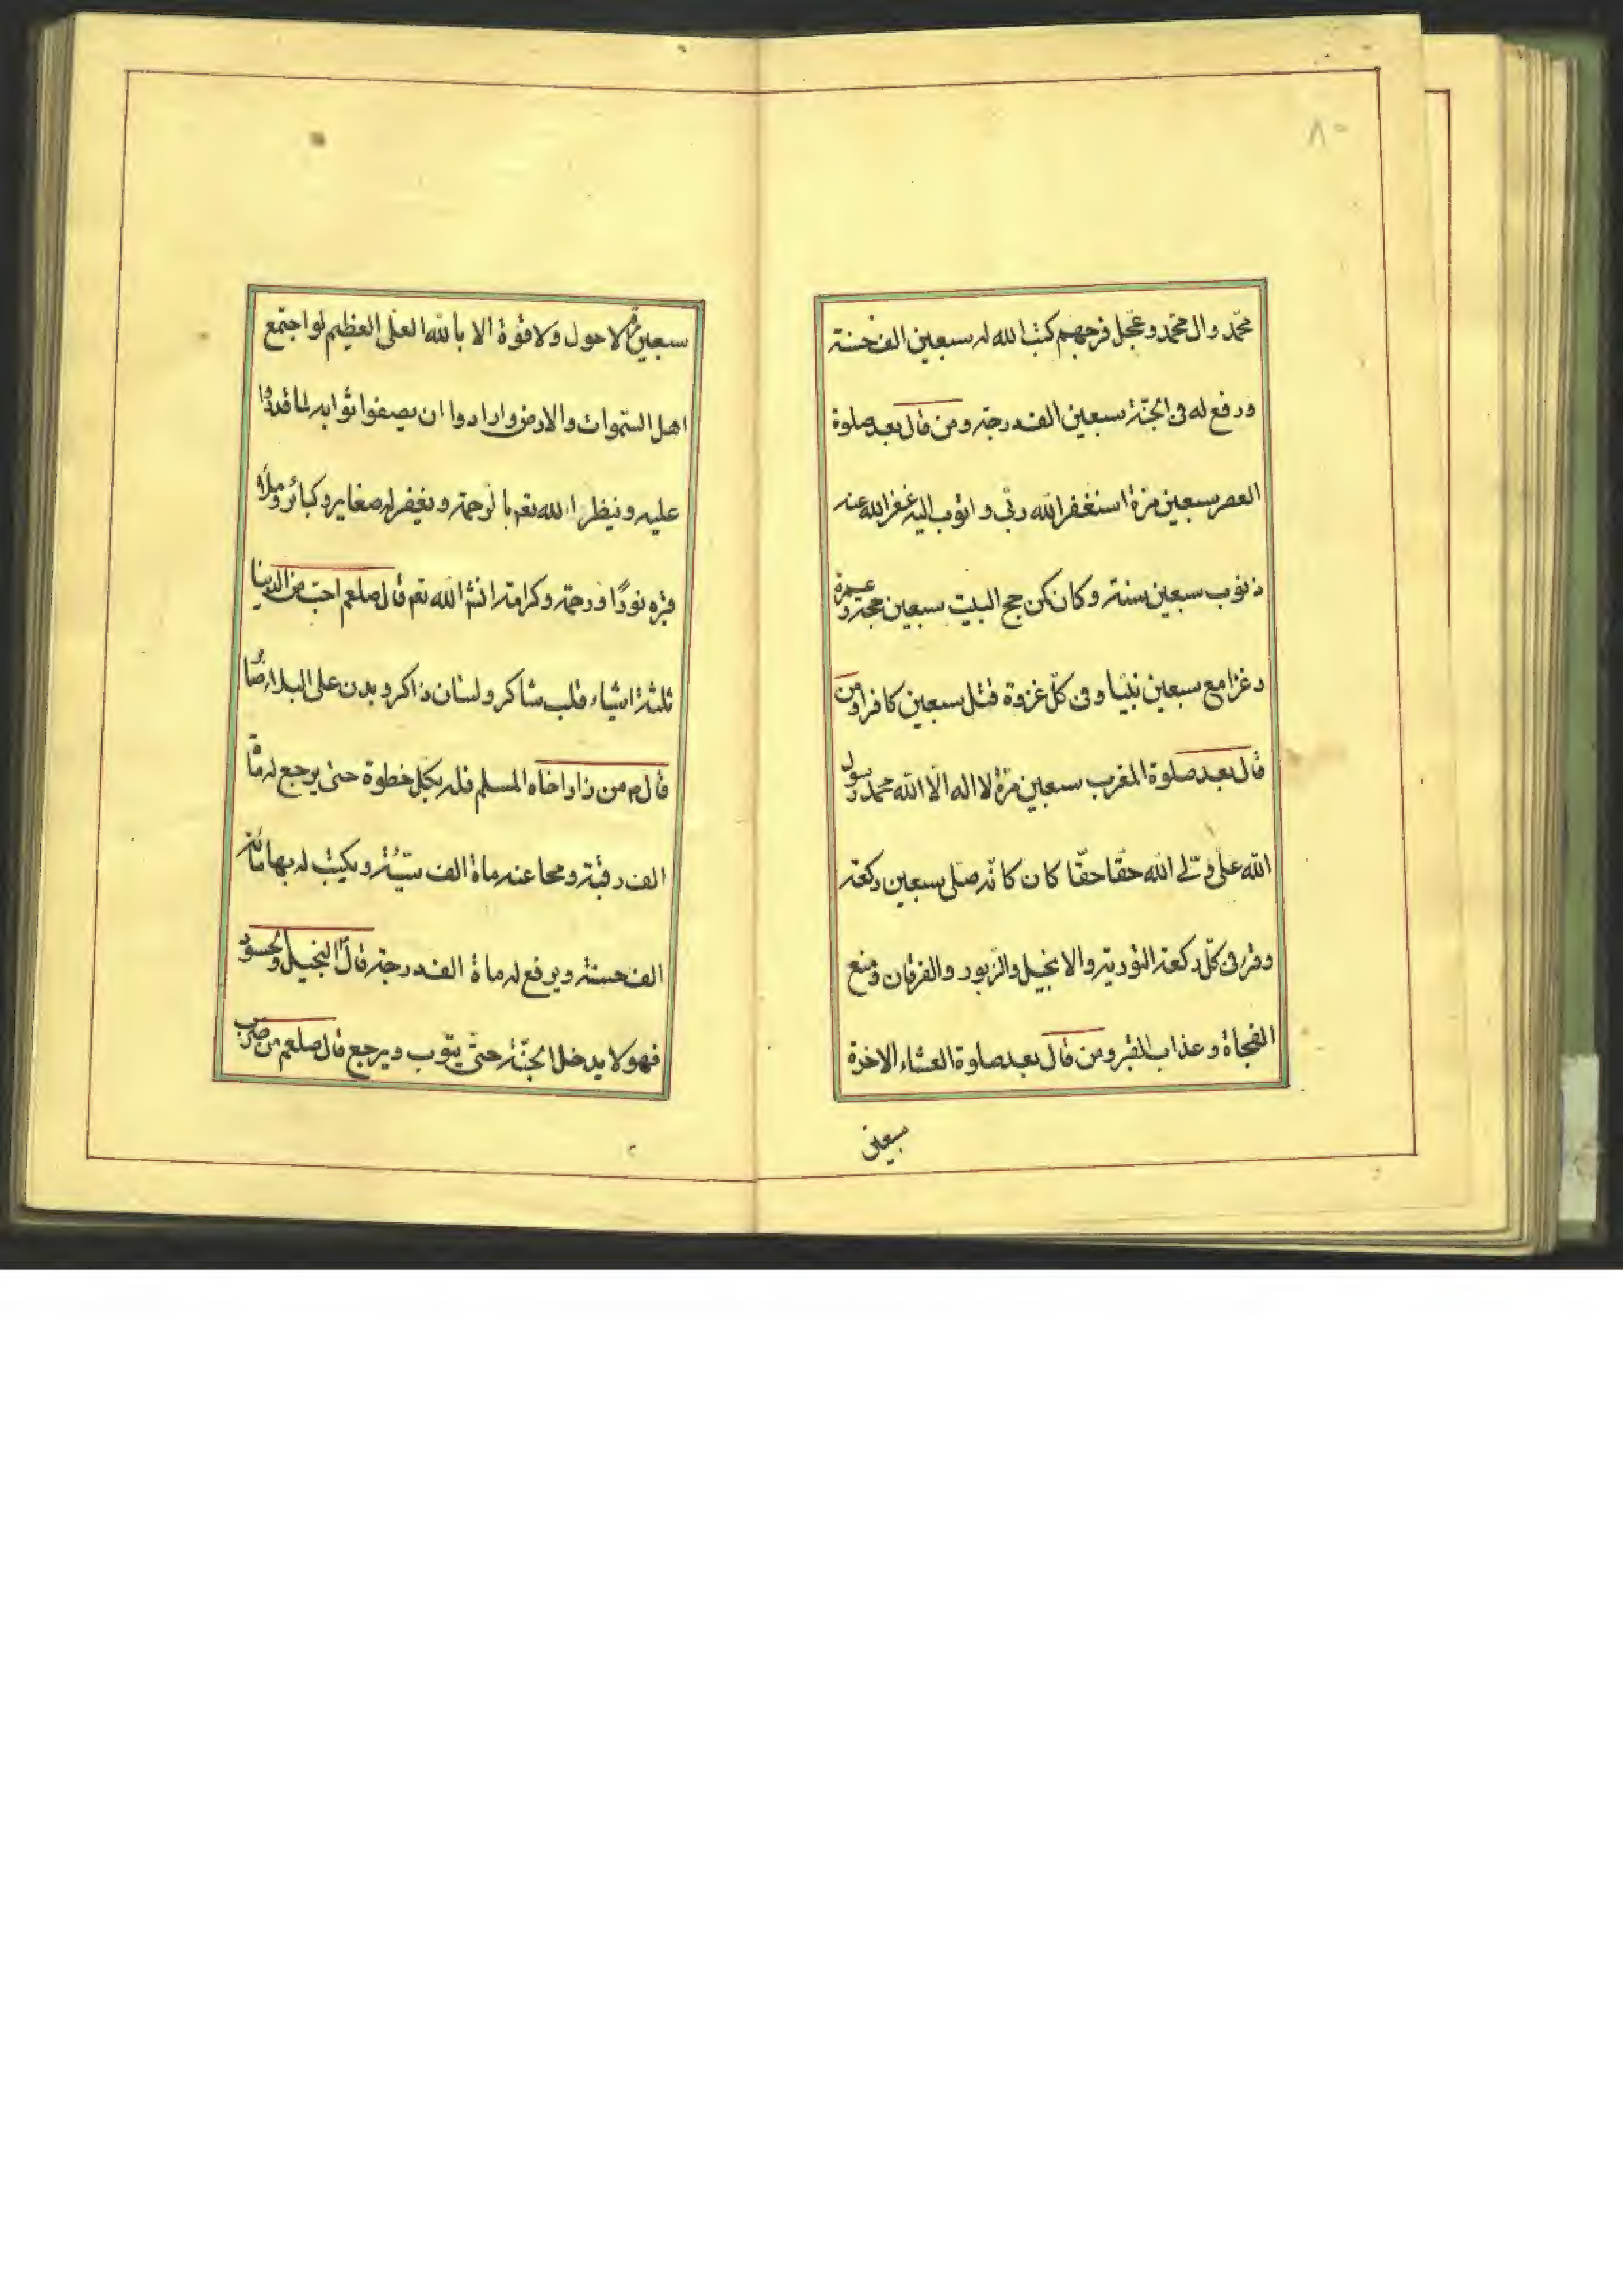 ٨٠
محمّد وال محمّد و عجّل فرجهم كتب الله له سبعين الف حسنة
ورفع له فى الجنّة سبعين الف درجة ومن قال بعد صلوة
العصر سبعين مرّة استغفر الله ربّي و اتوب اليه غفر الله عنه
ذنوب سبعين سنة و كان كمن حج البيت سبعين حجة و عمرة
و غزا مع سبعين نبيّا و فى كلّ غزوة قتل سبعين كافرا و من
قال بعد صلوة المغرب سبعين مرّة لا اله الّا الله محمد رسول
الله علىّ ولىّ الله حقّا حقّا كان كانّه صلّى سبعين ركعة
وقرء فى كلّ ركعة التورية و الانجيل والزبور والفرقان و منع
الفجاة و عذاب القبر و من قال بعد صلوة العشاء الاخرة
سبعين
سبعين مرة لا حول ولا قوّة الا بالله العلى العظيم لو اجتمع
اهل السّموات والارض و ارادوا ان يصفوا ثوابه لما قدروا
عليه و ينظر الله تعم بالرحمة و يغفر له صغايره و كبائره و ملاء
قبره نورًا و رحمة و كرامة انشاء الله تعم قال صلعم احبّ من الدينا
ثلثة اشياء قلب شاكر و لسان ذاكر و بدن على البلاء صابرا
قال م من زار اخاه المسلم فله بكلّ خطوة حتى يرجع له مائة
الف رقبة و محا عنه ماة الف سيّئة و يكتب له بها مائة
الف حسنة و يرفع له ماة الف درجة قال البخيل والحسود
فهو لا يدخل الجنّة حتّى يتوب و يرجع قال صلعم من ضرب